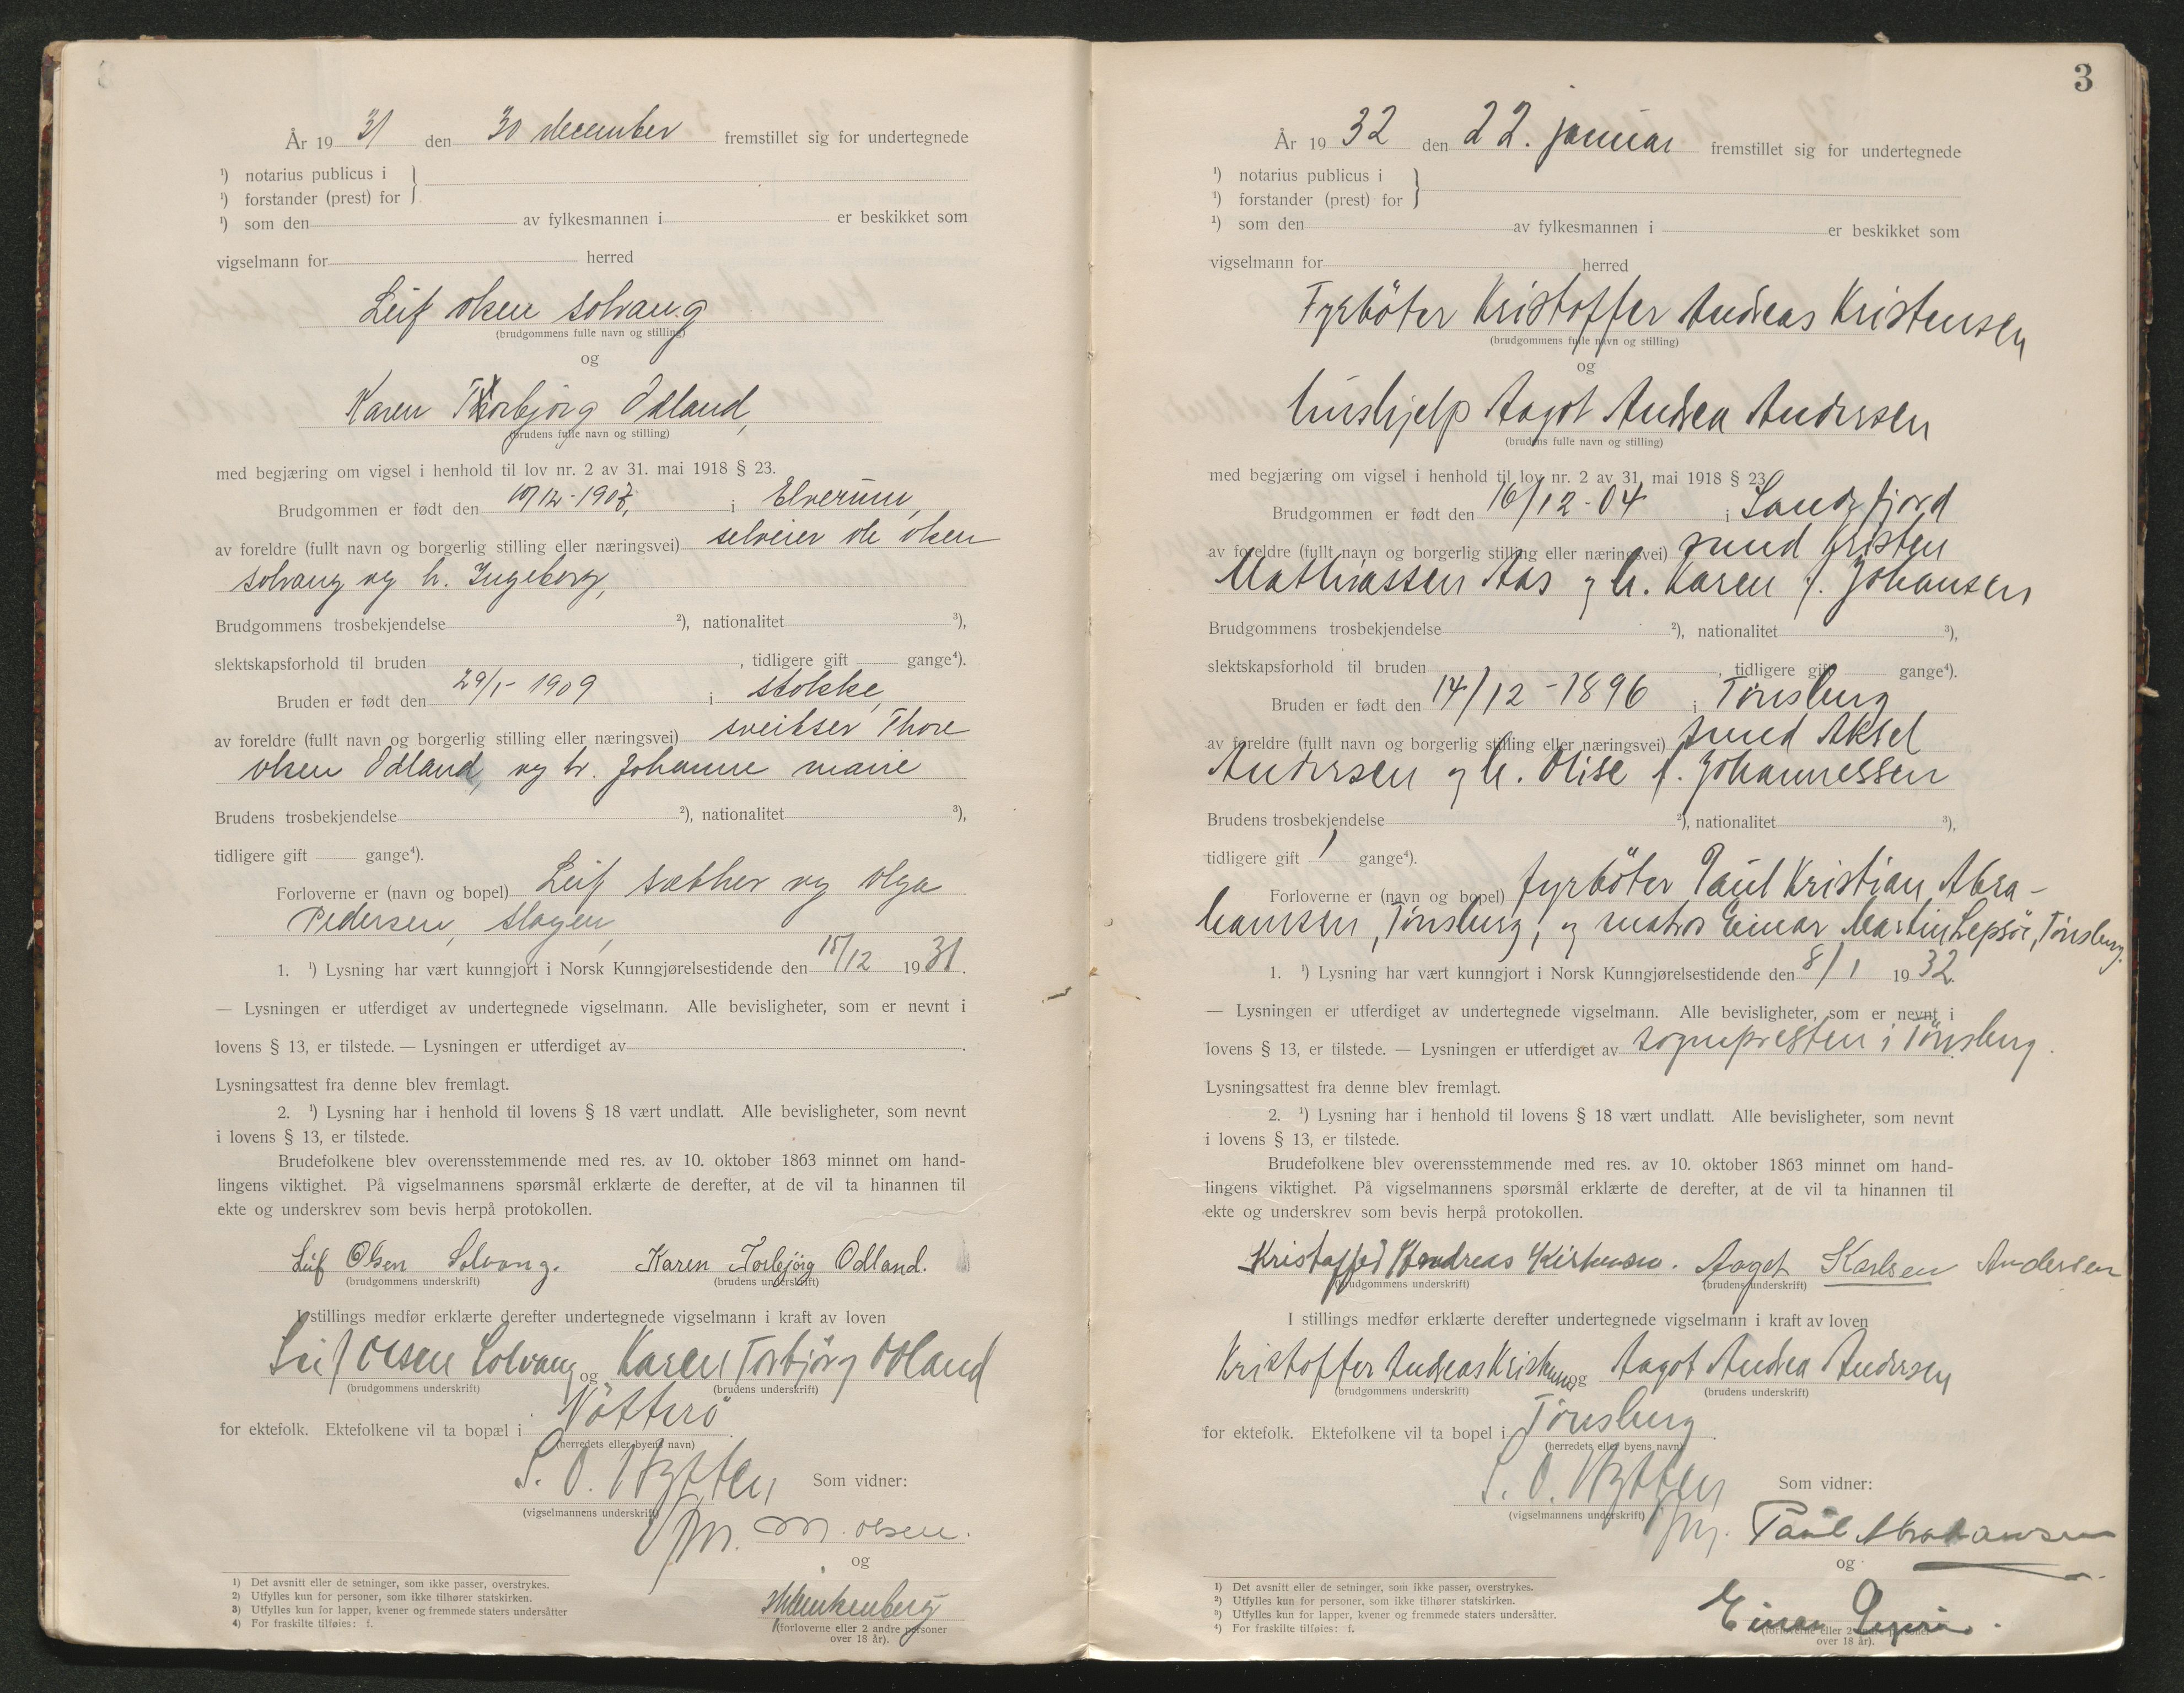 År 1931 den 30 december fremstillet sig for undertegnede
¹) notarius publicus i
¹) forstander (prest) for }
¹) som den av fylkesmannen i er beskikket som
vigselmann for herred
Leif Olsen Solvang
(brudgommens fulle navn og stilling)
og
Karen Thorbjørg Odland,
(brudens fulle navn og stilling)
med begjæring om vigsel i henhold til lov nr. 2 av 31. mai 1918 § 23.
Brudgommen er født den 10/12-1907, i Elverum,
av foreldre (fullt navn og borgerlig stilling eller næringsvei) selveier Ole Olsen
Solvang og h. Ingeborg,
Brudgommens trosbekjendelse ²), nationalitet ³),
slektskapsforhold til bruden , tidligere gift gange⁴).
Bruden er født den 29/1-1909 i Stokke,
av foreldre (fullt navn og borgerlig stilling eller næringsvei) sveitser Thore
Olsen Odland, og h. Johanne Marie
Brudens trosbekjendelse ²), nationalitet ³),
tidligere gift gange⁴).
Forloverne er (navn og bopel) Leif Sæther og Olga
Pedersen, Slagen,
1. ¹) Lysning har vært kunngjort i Norsk Kunngjørelsestidende den 15/12 1931.
— Lysningen er utferdiget av undertegnede vigselmann. Alle bevisligheter, som er nevnt i
lovens § 13, er tilstede. — Lysningen er utferdiget av .
Lysningsattest fra denne blev fremlagt.
2. ¹) Lysning har i henhold til lovens § 18 vært undlatt. Alle bevisligheter, som nevnt
i lovens § 13, er tilstede.
Brudefolkene blev overensstemmende med res. av 10. oktober 1863 minnet om hand-
lingens viktighet. På vigselmannens spørsmål erklærte de derefter, at de vil ta hinannen til
ekte og underskrev som bevis herpå protokollen.
Leif Olsen Solvang. Karen Torbjörg Odland.
(brudgommens underskrift) (brudens underskrift)
I stillings medfør erklærte derefter undertegnede vigselmann i kraft av loven
Leif Olsen Solvang og Karen Torbjörg Odland
(brudgommens underskrift) (brudens underskrift)
for ektefolk. Ektefolkene vil ta bopæl i Nötterö.
(herredets eller byens navn)
S. O. Hytten Som vidner:
(vigselmannens underskrift)
fm. M. Olsen.
og
(forloverne eller 2 andre personer
over 18 år).
1) Det avsnitt eller de setninger, som ikke passer, overstrykes.
2) Utfylles kun for personer, som ikke tilhører statskirken.
3) Utfylles kun for lapper, kvener og fremmede staters undersåtter
4) For fraskilte tilføies: f.
3
År 1932 den 22. januar fremstillet sig for undertegnede
¹) notarius publicus i
¹) forstander (prest) for }
¹) som den av fylkesmannen i er beskikket som
vigselmann for herred
Fyrböter Kristoffer Andreas Kristensen
(brudgommens fulle navn og stilling)
og
hushjelp Aagot Andrea Andersen
(brudens fulle navn og stilling)
med begjæring om vigsel i henhold til lov nr. 2 av 31. mai 1918 § 23
Brudgommen er født den 16/12-04 i Sandefjord
av foreldre (fullt navn og borgerlig stilling eller næringsvei) smed Kristen
Mathiassen Aas og h. Karen f. Johansen
Brudgommens trosbekjendelse ²), nationalitet ³),
slektskapsforhold til bruden , tidligere gift gange⁴).
Bruden er født den 14/12-1896 i Tønsberg
av foreldre (fullt navn og borgerlig stilling eller næringsvei) smed Aksel
Andersen og h. Olise f. Johannessen
Brudens trosbekjendelse ²), nationalitet ³),
tidligere gift 1 gange⁴).
Forloverne er (navn og bopel) fyrböter Paul Kristian Abra-
hamsen, Tønsberg, og matros Einar Martin Lepsöe, Tønsberg.
1. ¹) Lysning har vært kunngjort i Norsk Kunngjørelsestidende den 8/1 1932.
— Lysningen er utferdiget av undertegnede vigselmann. Alle bevisligheter, som er nevnt i
lovens § 13, er tilstede. — Lysningen er utferdiget av sognepresten i Tønsberg.
Lysningsattest fra denne blev fremlagt.
2. ¹) Lysning har i henhold til lovens § 18 vært undlatt. Alle bevisligheter, som nevnt
i lovens § 13, er tilstede.
Brudefolkene blev overensstemmende med res. av 10. oktober 1863 minnet om hand-
lingens viktighet. På vigselmannens spørsmål erklærte de derefter, at de vil ta hinannen til
ekte og underskrev som bevis herpå protokollen.
Kristoffer Andreas Kristensen. Aagot Karlsen Andersen
(brudgommens underskrift) (brudens underskrift)
I stillings medfør erklærte derefter undertegnede vigselmann i kraft av loven
Kristoffer Andreas Kristensen og Aagot Andrea Andersen
(brudgommens underskrift) (brudens underskrift)
for ektefolk. Ektefolkene vil ta bopel i Tønsberg.
(herredets eller byens navn)
S. O. Hytten Som vidner:
(vigselmannens underskrift)
fm. Paul Abrahamsen
og
Einar Lepsöe.
(forloverne eller 2 andre personer
over 18 år).
1) Det avsnitt eller de setninger, som ikke passer, overstrykes.
2) Utfylles kun for personer, som ikke tilhører statskirken.
3) Utfylles kun for lapper, kvener og fremmede staters undersåtter.
4) For fraskilte tilføies: f.